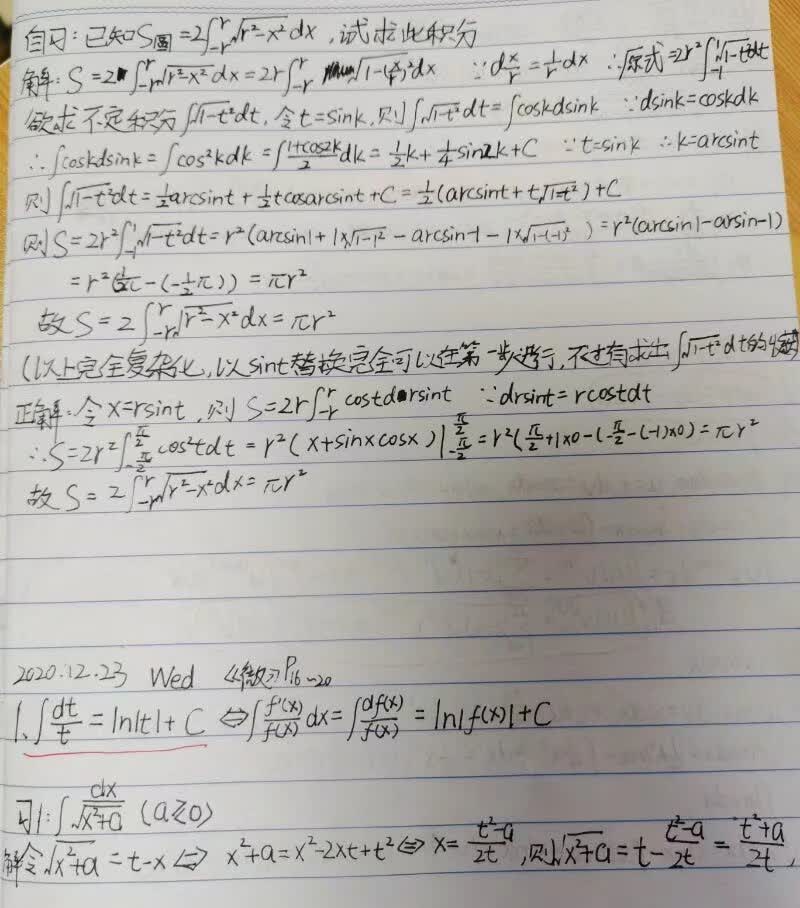 自习:已知S圆=2∫_{-r}^{r}√(r²-x²)dx,试求此积分
解:S=2∫_{-r}^{r}√(r²-x²)dx=2r∫_{-r}^{r}√(1-(x/r)²)dx ∵d(x/r)=(1/r)dx ∴原式=2r²∫_{-1}^{1}√(1-t²)dt
欲求不定积分∫√(1-t²)dt,令t=sink,则∫√(1-t²)dt=∫coskdsink ∵dsink=coskdk
∴∫coskdsink=∫cos²kdk=∫(1+cos2k)/2 dk=½k+¼sin2k+C ∵t=sink ∴k=arcsint
则∫√(1-t²)dt=½arcsint+½tcosarcsint+C=½(arcsint+t√(1-t²))+C
则S=2r²∫_{-1}^{1}√(1-t²)dt=r²(arcsin1+1×√(1-1²)-arcsin-1-1×√(1-(-1)²))=r²(arcsin1-arsin-1)
=r²(½π-(-½π))=πr²
故S=2∫_{-r}^{r}√(r²-x²)dx=πr²
(以上完全复杂化,以sint替换完全可以在第一步进行,不过有求出∫√(1-t²)dt的
正解:令x=rsint,则S=2r∫_{-r}^{r}costdrsint ∵drsint=rcostdt
∴S=2r²∫_{-π/2}^{π/2}cos²tdt=r²(x+sinxcosx)|_{-π/2}^{π/2}=r²(π/2+1×0-(-π/2-(-1)×0)=πr²
故S=2∫_{-r}^{r}√(r²-x²)dx=πr²
2020.12.23 Wed 《微》P16~20
1、∫dt/t=ln|t|+C ⇔∫f'(x)/f(x) dx=∫df(x)/f(x)=ln|f(x)|+C
习1:∫dx/√(x²+a) (a≷0)
解令√(x²+a)=t-x⇔x²+a=x²-2xt+t²⇔x=(t²-a)/2t,则√(x²+a)=t-(t²-a)/2t=(t²+a)/2t,